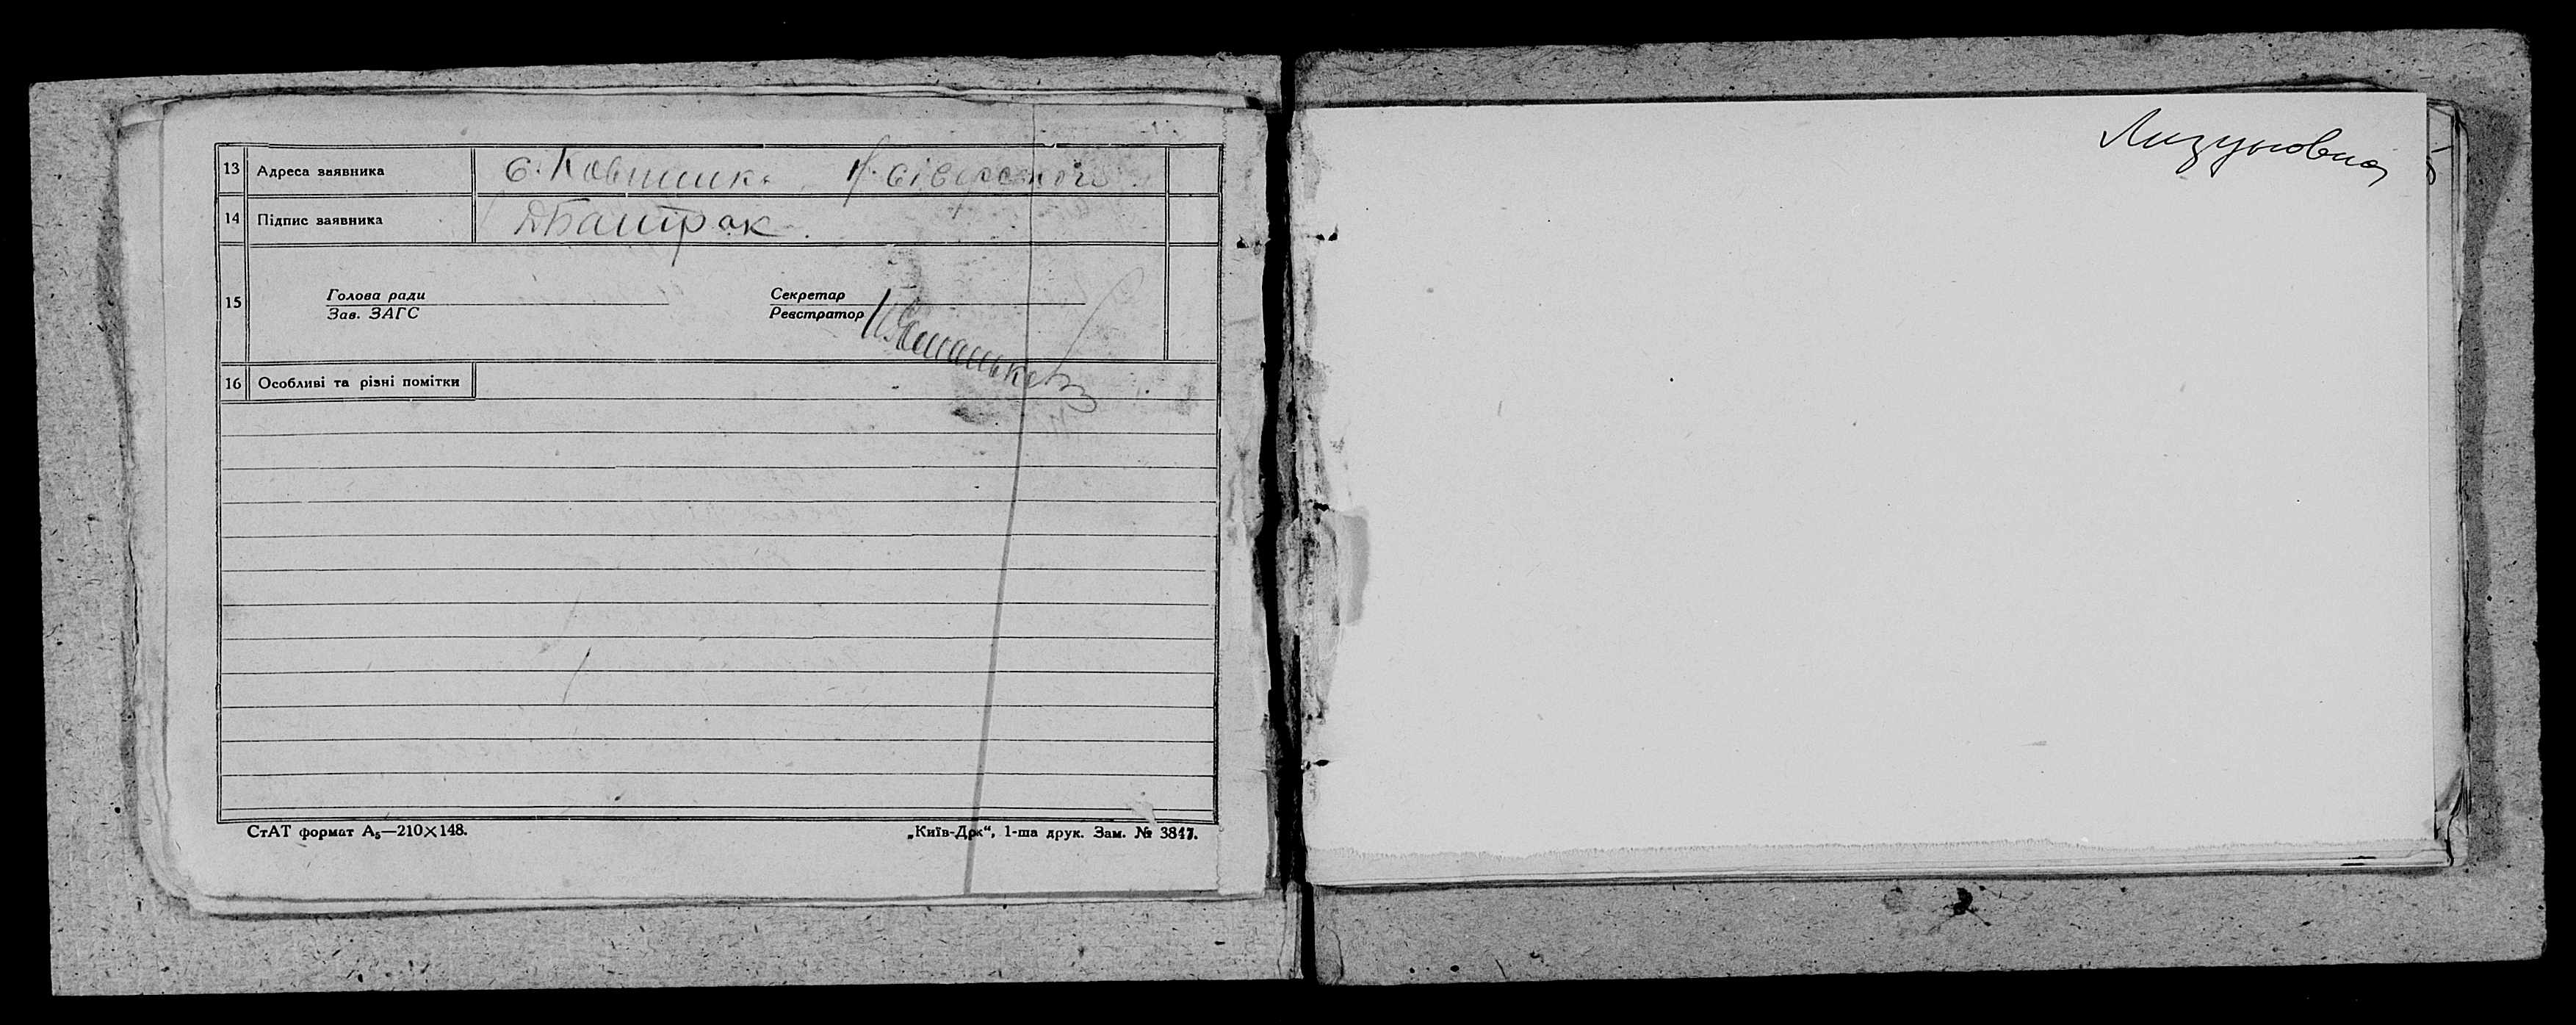 13 Адреса заявника с. Ковпинка Н. Сіверського
14 Підпис заявника Д Баштрак
15 Голова ради
Зав. ЗАГС
Секретар
Реєстратор
16 Особливі та різні помітки
СтАТ формат А₅—210×148. „Київ-Друк“, 1-ша друк. Зам. № 3847.
Лизуновка